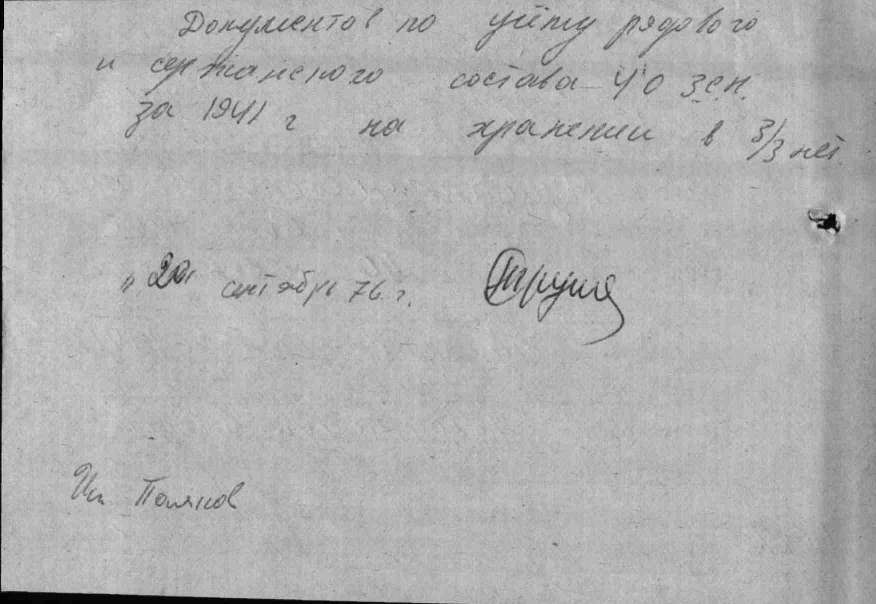 Документов по учёту рядового
и сержанского состава 40 зен.
за 1941 г на хранении в 3/3 нет.
"20" сентябрь 76 г.
Исп Поляков